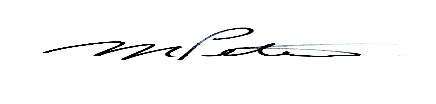 M Peters